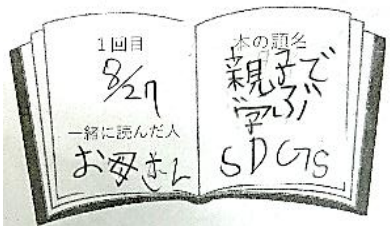 1回目
8/27
一緒に読んだ人
お母さん
本の題名
親子で
学ぶ
SDGs